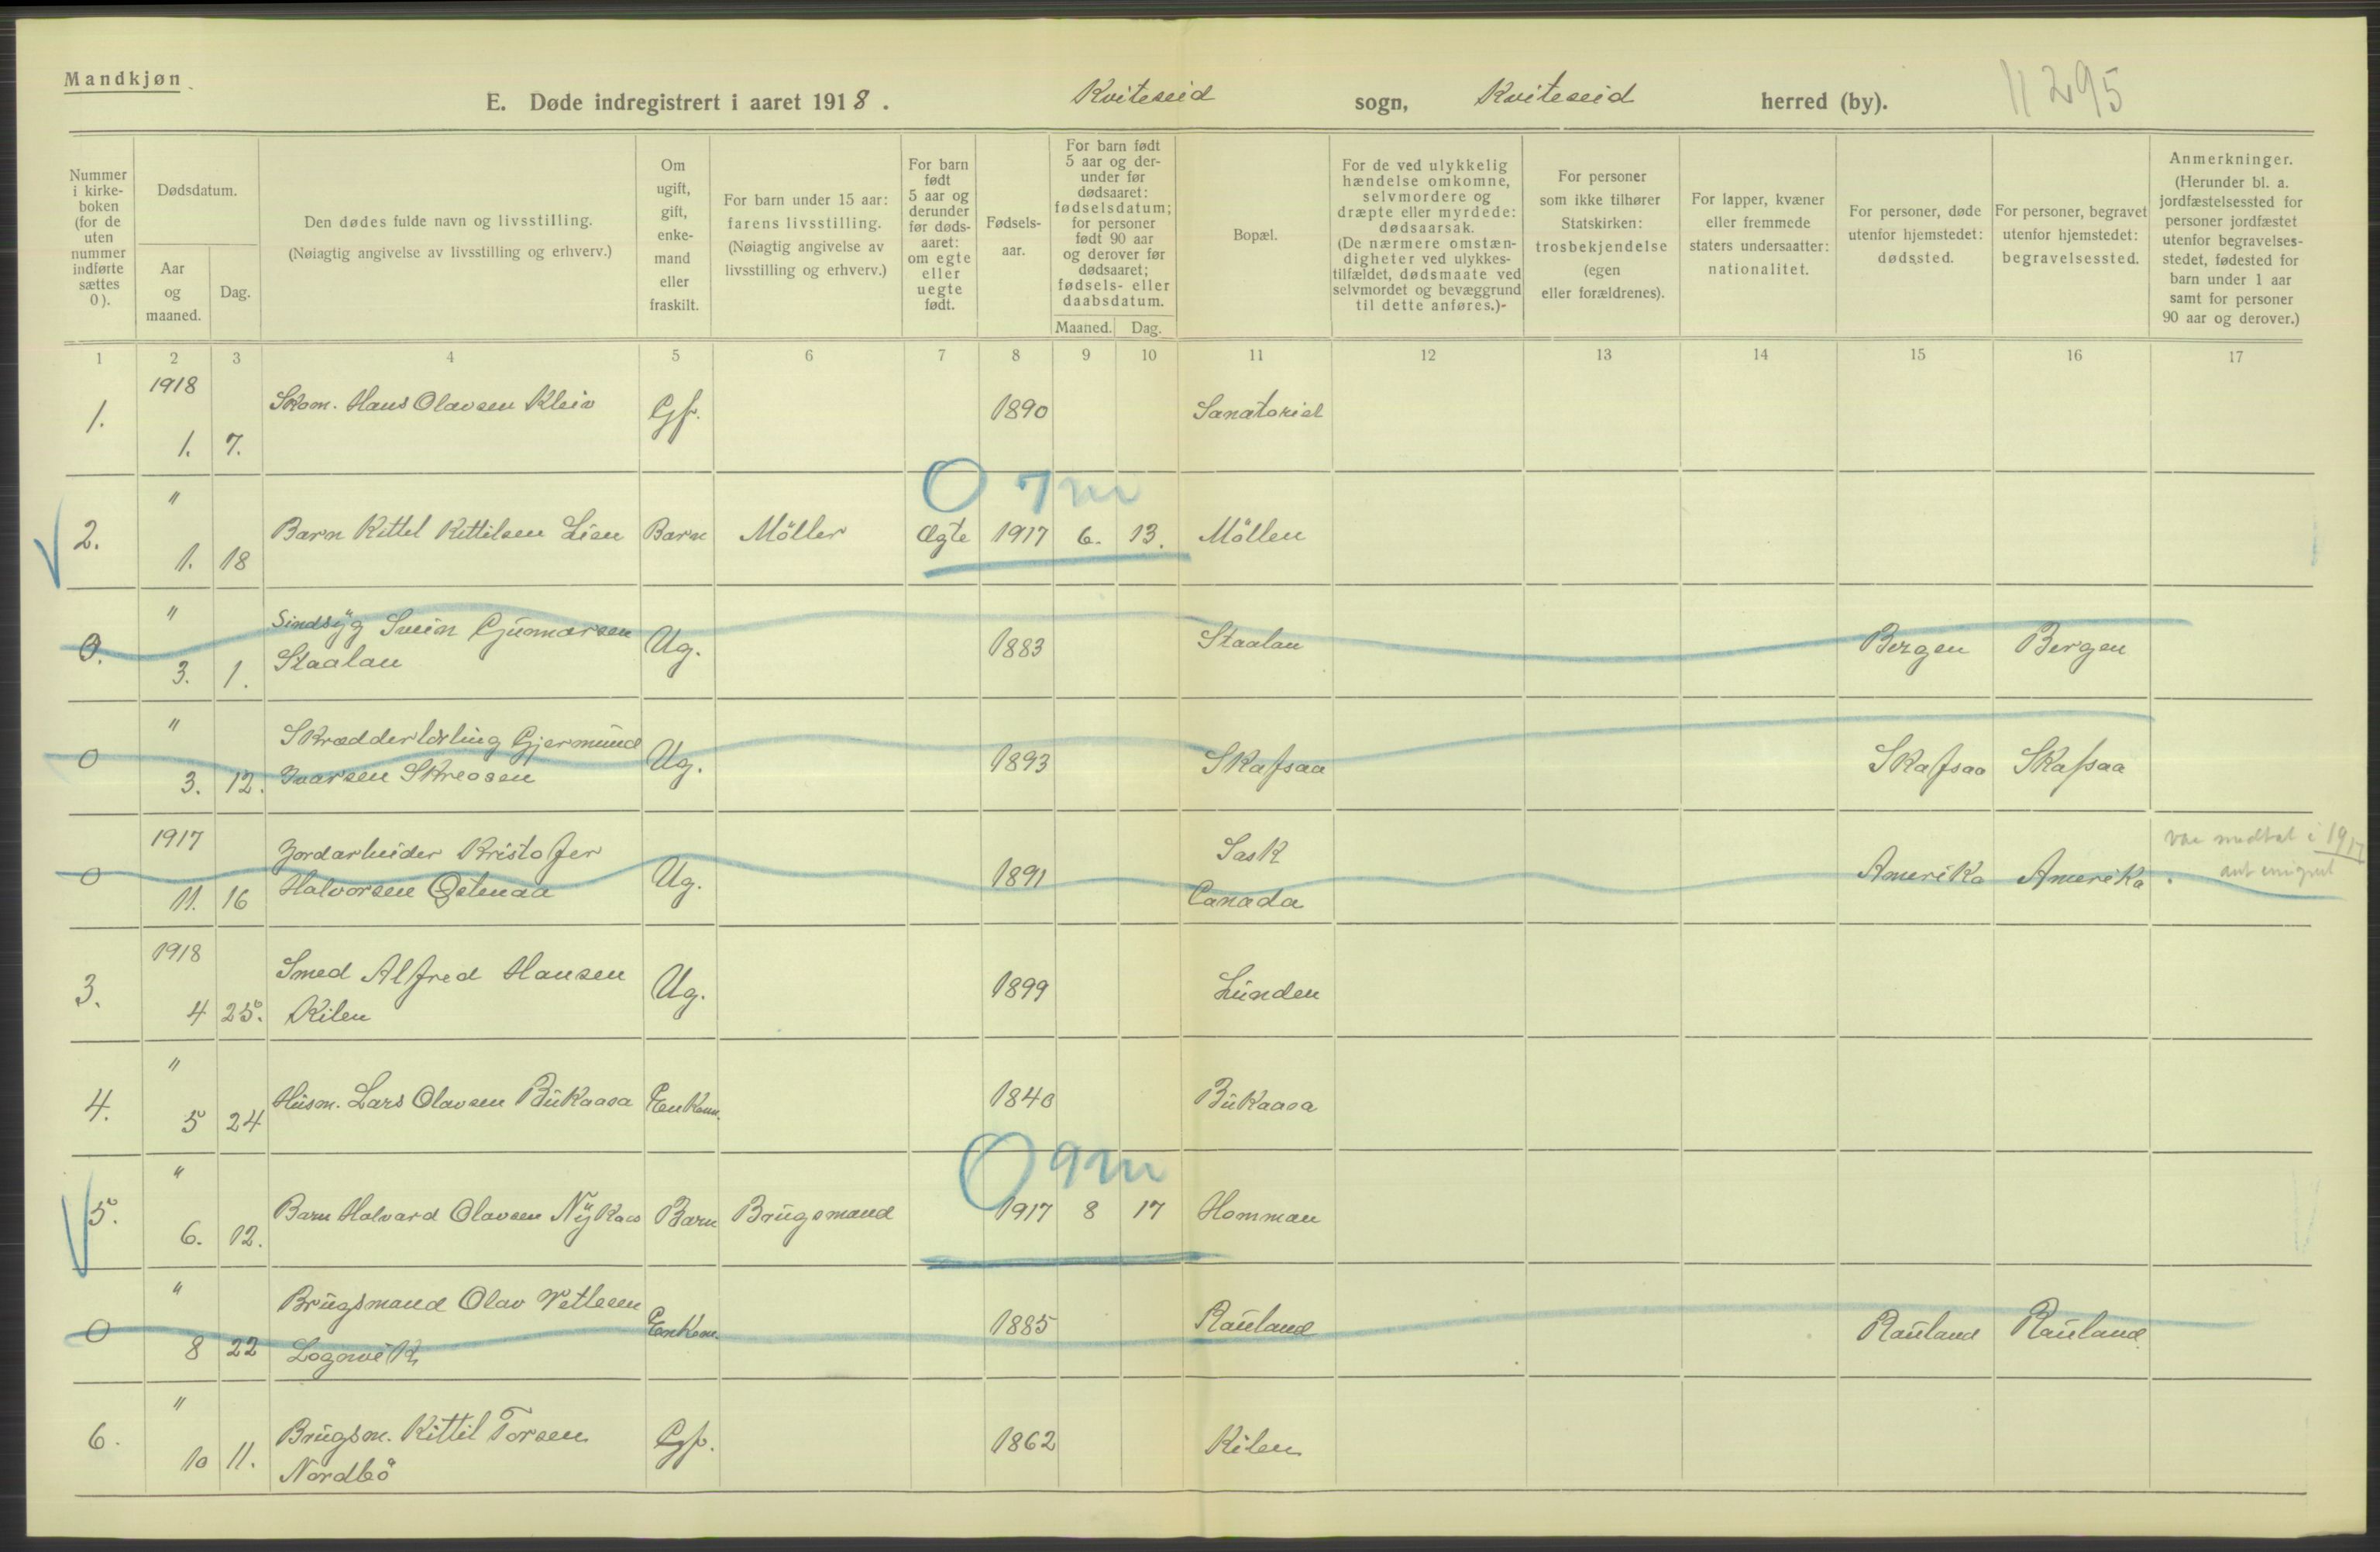 Mandkjøn
E. Døde indregistrert i aaret 1918. Kviteseid sogn, Kviteseid herred (by). 11295
Nummer i kirke-boken (for de uten nummer indførte sættes 0).
Dødsdatum.
Aar og maaned.
Dag.
Den dødes fulde navn og livsstilling.
(Nøiagtig angivelse av livsstilling og erhverv.)
Om ugift, gift, enke-mand eller fraskilt.
For barn under 15 aar: farens livsstilling.
(Nøiagtig angivelse av livsstilling og erhverv.)
For barn født 5 aar og derunder før døds-aaret: om egte eller uegte født.
Fødsels-aar.
For barn født 5 aar og der-under før dødsaaret: fødselsdatum; for personer født 90 aar og derover før dødsaaret; fødsels- eller daabsdatum.
Maaned. Dag.
Bopæl.
For de ved ulykkelig hændelse omkomne, selvmordere og dræpte eller myrdede: dødsaarsak.
(De nærmere omstæn-digheter ved ulykkes-tilfældet, dødsmaate ved selvmordet og bevæggrund til dette anføres.)-
For personer som ikke tilhører Statskirken: trosbekjendelse (egen eller forældrenes).
For lapper, kvæner eller fremmede staters undersaatter: nationalitet.
For personer, døde utenfor hjemstedet: dødssted.
For personer, begravet utenfor hjemstedet: begravelsessted.
Anmerkninger.
(Herunder bl. a. jordfæstelsessted for personer jordfæstet utenfor begravelses-stedet, fødested for barn under 1 aar samt for personer 90 aar og derover.)
1 2 3 4 5 6 7 8 9 10 11 12 13 14 15 16 17
1. 1918 1. 7. Skom. Hans Olavsen Kleiv Gf. 1890 Sanatoriet
0 7m
2. " 1. 18 Barn Kittel Kittilsen Lien Barn Möller Ægte 1917 6. 13. Möllen
0. " 3. 1. Sindsyg Svein Gunnarsen
Staalan Ug. 1883 Staalan Bergen Bergen
0 " 3. 12. Skrædderlærling Gjermund
Ivarsen Skreosen Ug. 1893 Skafsaa Skafsaa Skafsaa
0 1917 11. 16 Jordarbeider Kristofer
Halvorsen Østenaa Ug. 1891 Sask
Canada Amerika Amerika.
1917
3. 1918 4 25. Smed Alfred Hansen
Kilen Ug. 1899 Lunden
4. " 5 24 Husm. Lars Olavsen Bukaasa Enkem. 1840 Bukaasa
0 9m
5. " 6. 12. Barn Halvard Olavsen Nykaas Barn Brugsmand 1917 8 17 Homman
0 " 8 22 Brugsmand Olav Vetlesen
Lognvik Enkem. 1885 Rauland Rauland Rauland
6. " 10 11. Brugsm. Kittil Torsen
Nordbö Gf. 1862 Kilen